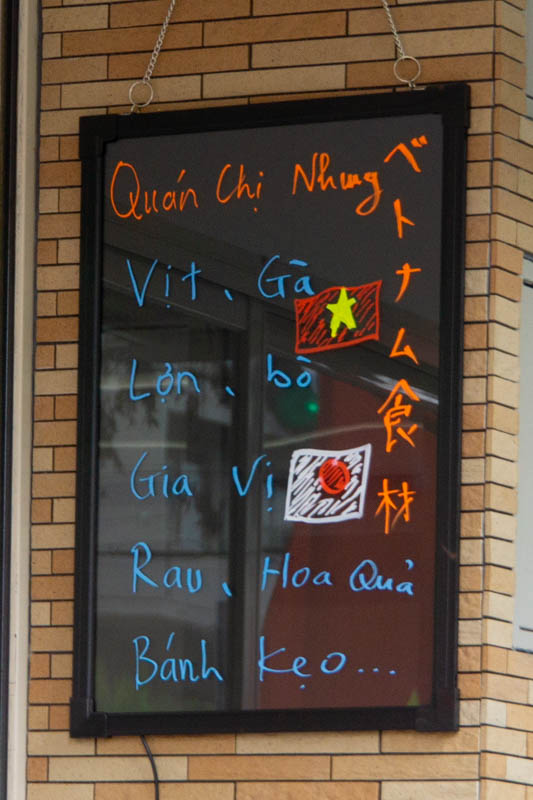 Quán Chị Nhung
ベトナム食材
Vịt、Gà
Lợn、bò
Gia Vị
Rau、Hoa Quả
Bánh kẹo...